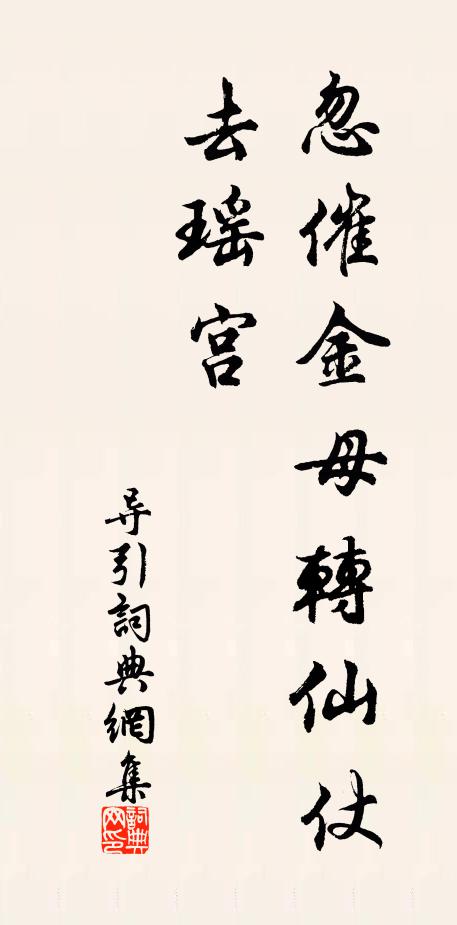 忽催金母轉仙仗
去瑶宫
导引詞典網集
詞典
网印